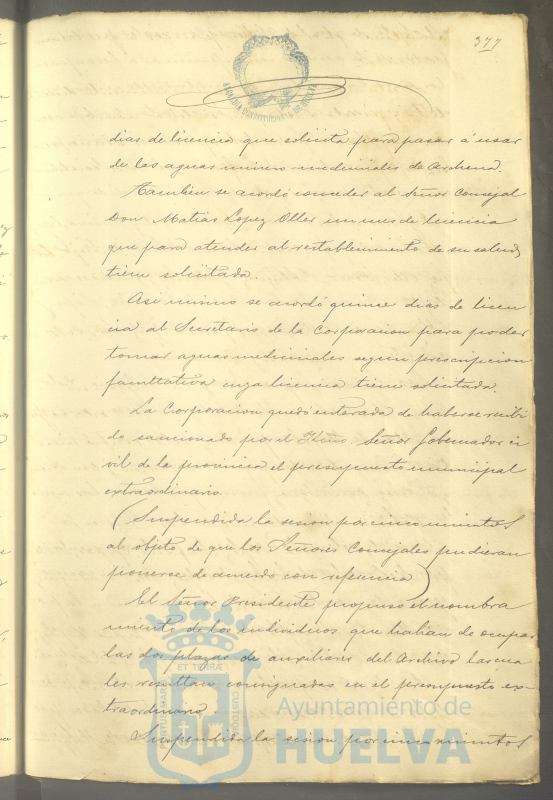 377
ALCALDIA CONSTITUCIONAL DE HUELVA
dias de licencia que solicita para pasar á usar
de las aguas minero medicinales de Archena.
Tambien se acordó conceder al Señor Concejal
Don Matias Lopez Oller un mes de licencia
que para atender al restablecimiento de su salud
tiene solicitada.
Asi mismo se acordó quince dias de licen
cia al Secretario de la Corporacion para poder
tomar aguas medicinales segun prescripcion
facultativa cuya licencia tiene solicitada.
La Corporacion quedó enterada de haberse recibi
do sancionado por el Iltmo. Señor Gobernador ci
vil de la provincia el presupuesto municipal
extraordinario
(Suspendida la sesion por cinco minutos
al objeto de que los Señores Concejales pudieran
ponerse de acuerdo con referencia)
El Señor Presidente propuso el nombra
miento de los individuos que habian de ocupar
las dos plazas de auxiliares del Archivo las cua
les resultan consignadas en el presupuesto ex-
traordinario
Suspendida la sesion por cinco minutos
PORTUS MARIS ET TERRÆ CUSTODIA
Ayuntamiento de
HUELVA